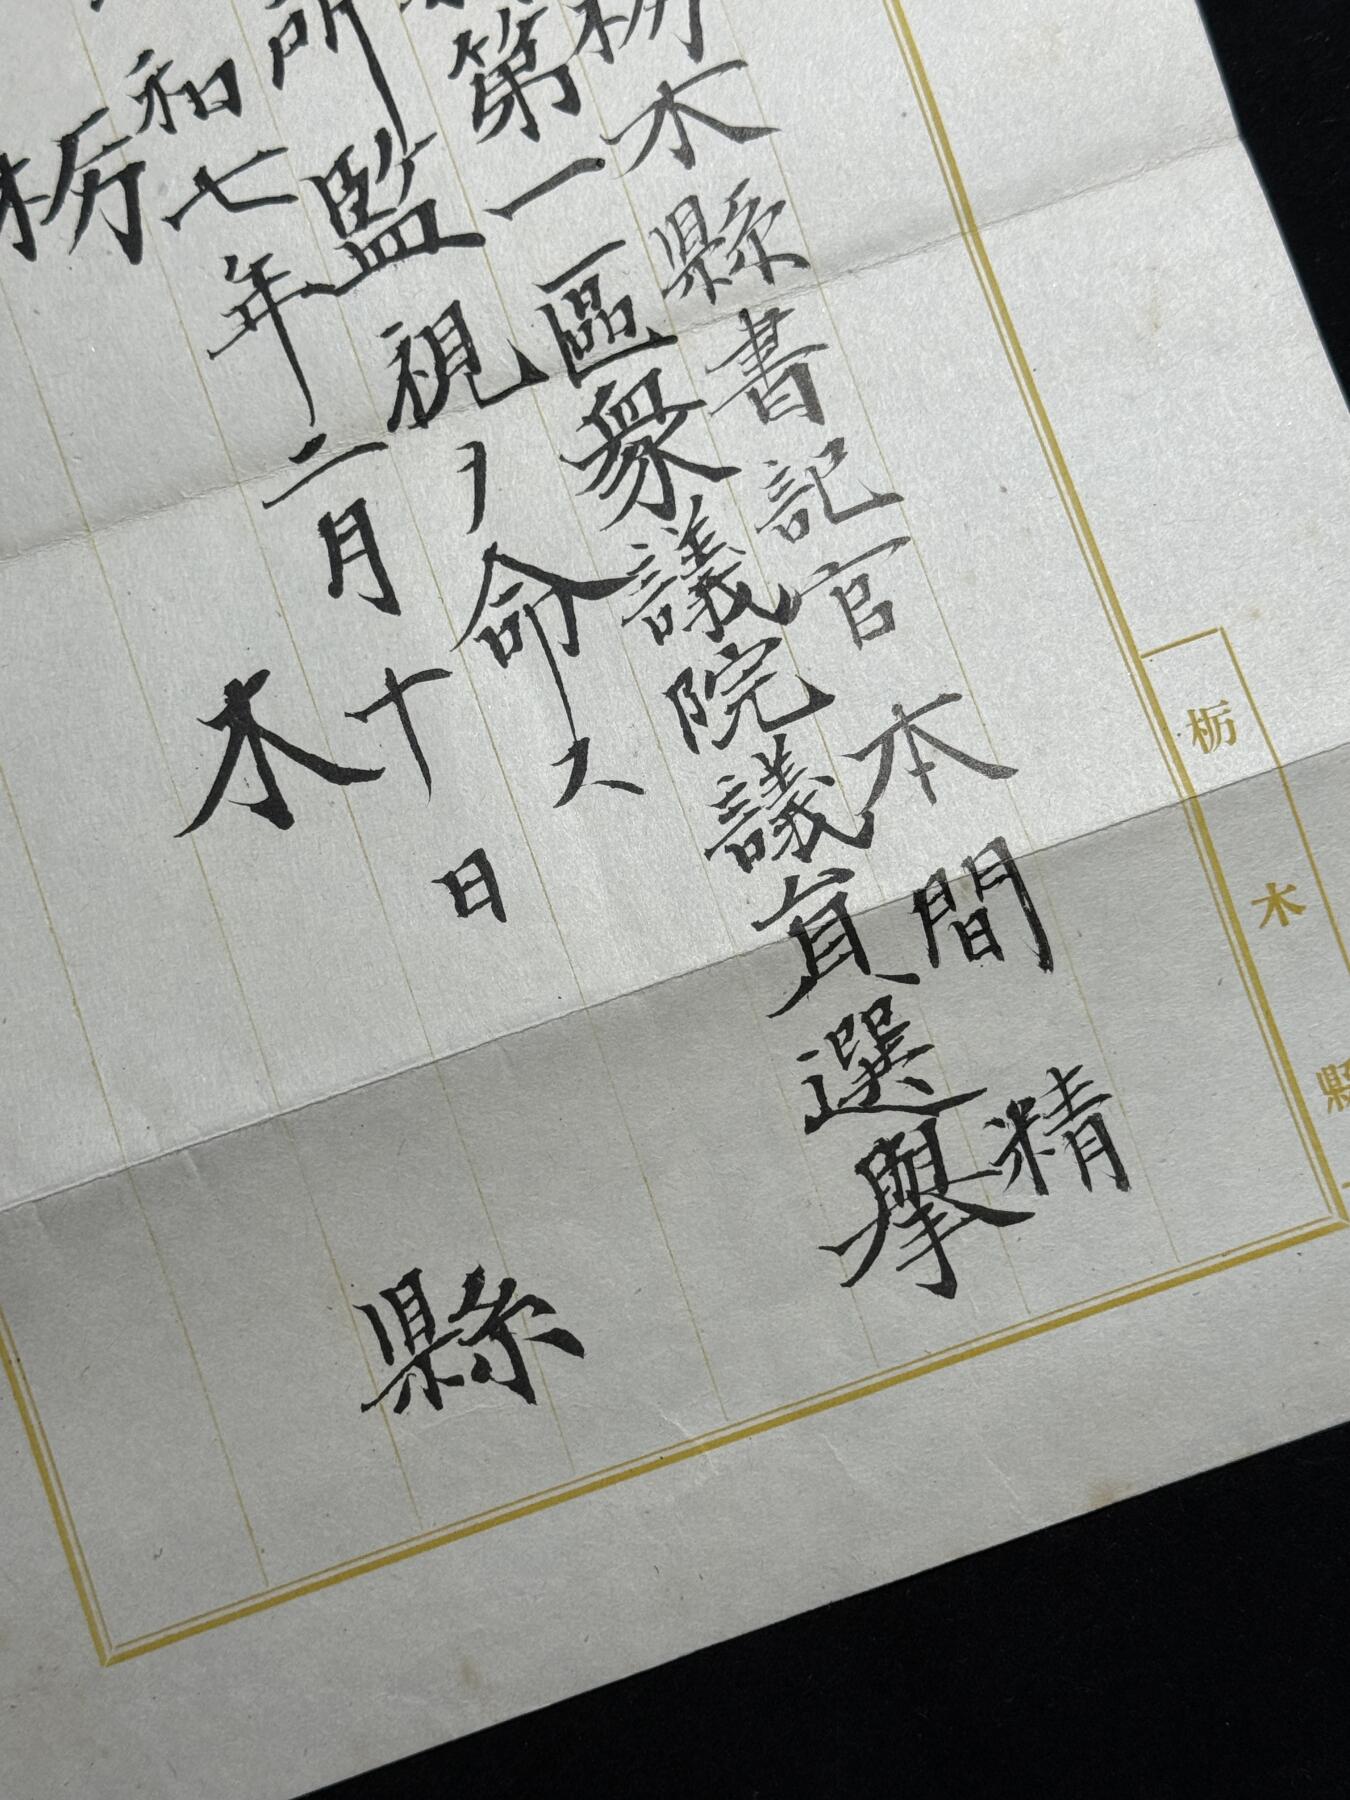 栃木縣
栃木縣書記官 本間精
第一區衆議院議員選擧
所監視ヲ命ス
和七年二月十日
栃木縣